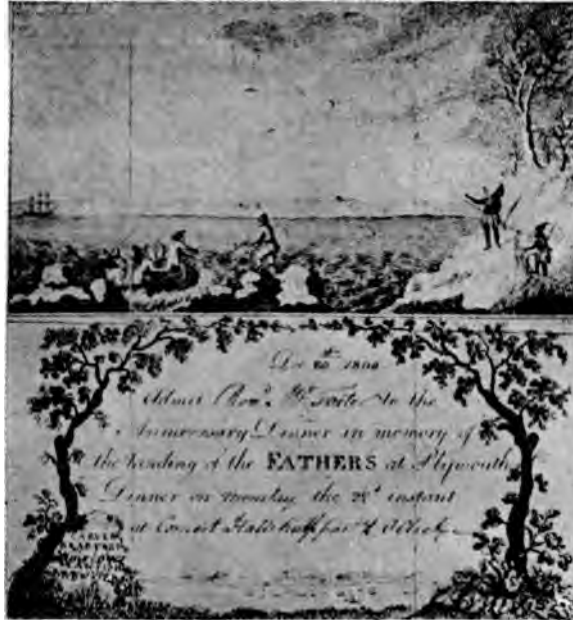 Dec 1800
Admit Rev.d to the
Anniversary Dinner in memory of
the landing of the FATHERS at Plymouth
Dinner on monday the instant
at Concert Hall half past O Clock
CARVER
BRADFORD